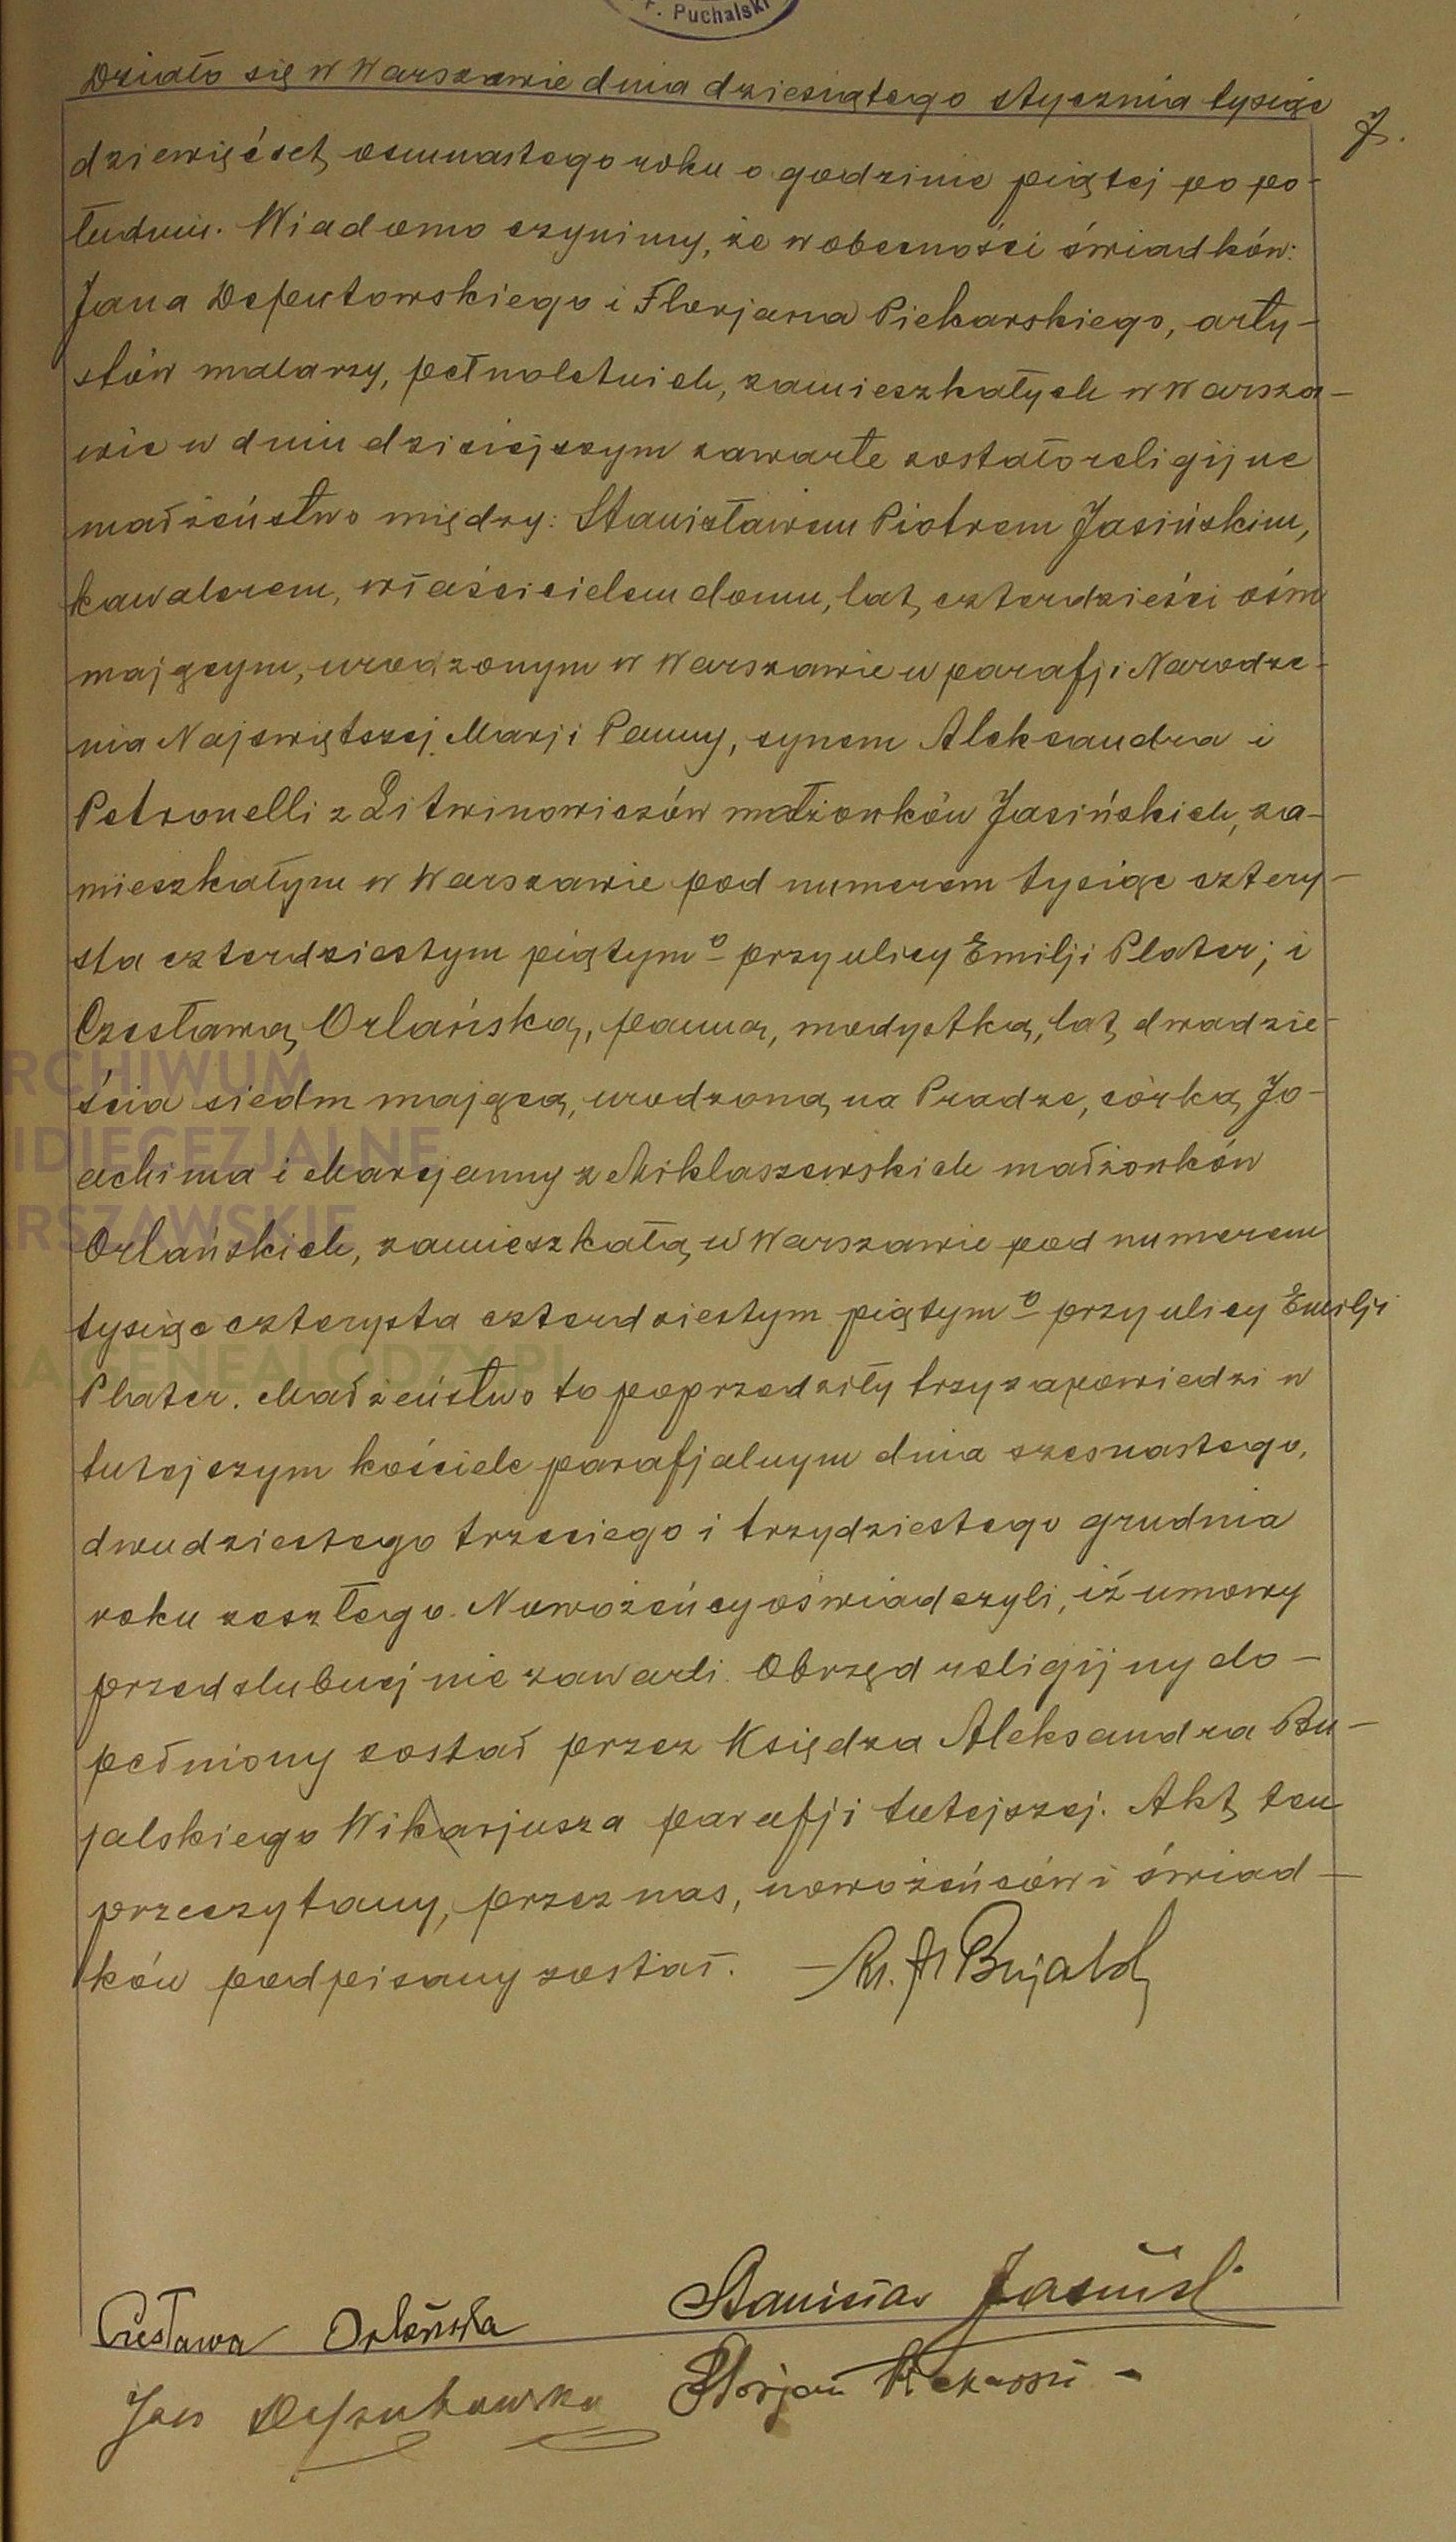 F. Puchalski
Działo się w Warszawie dnia dziesiątego stycznia tysiąc
J.
dziewięćset osmnastego roku o godzinie piątej po po-
łudniu. Wiadomo czynimy, że w obecności świadków:
Jana Deputowskiego i Florjana Piekarskiego, arty-
stów malarzy, pełnoletnich, zamieszkałych w Warsza-
wie w dniu dzisiejszym zawarte zostało religijne
małżeństwo między: Stanisławem Piotrem Jasińskim,
kawalerem, właścicielem domu, lat czterdzieści ośm
mającym, urodzonym w Warszawie w parafji Narodze-
nia Najświętszej Marji Panny, synem Aleksandra i
Petronelli z Litwinowiczów małżonków Jasińskich, za-
mieszkałym w Warszawie pod numerem tysiąc cztery-
sta czterdziestym piątym o przy ulicy Emilji Plater; i
Czesławą Orlańską, panną, modystką, lat dwadzie-
ścia siedm mającą, urodzoną na Pradze, córką Jo-
achima i Marcjanny z Miklaszewskich małżonków
Orlańskich, zamieszkałą w Warszawie pod numerem
tysiąc czterysta czterdziestym piątym o przy ulicy Emilji
Plater. Małżeństwo to poprzedziły trzy zapowiedzi w
tutejszym kościele parafjalnym dnia szesnastego,
dwudziestego trzeciego i trzydziestego grudnia
roku zeszłego. Nowożeńcy oświadczyli, iż umowy
przedślubnej nie zawarli. Obrzęd religijny do-
pełniony został przez Księdza Aleksandra Bu-
jalskiego Wikarjusza parafji tutejszej. Akt ten
przeczytany, przez nas, nowożeńców i świad-
ków podpisany został. Ks. A Bujalsk
Czesława Orlańska Stanisław Jasiński
Jan Deputowski Florjan Piekarski
ARCHIWUM
IDIECEZJALNE
ARSZAWSKIE
GENEALODZY.PL